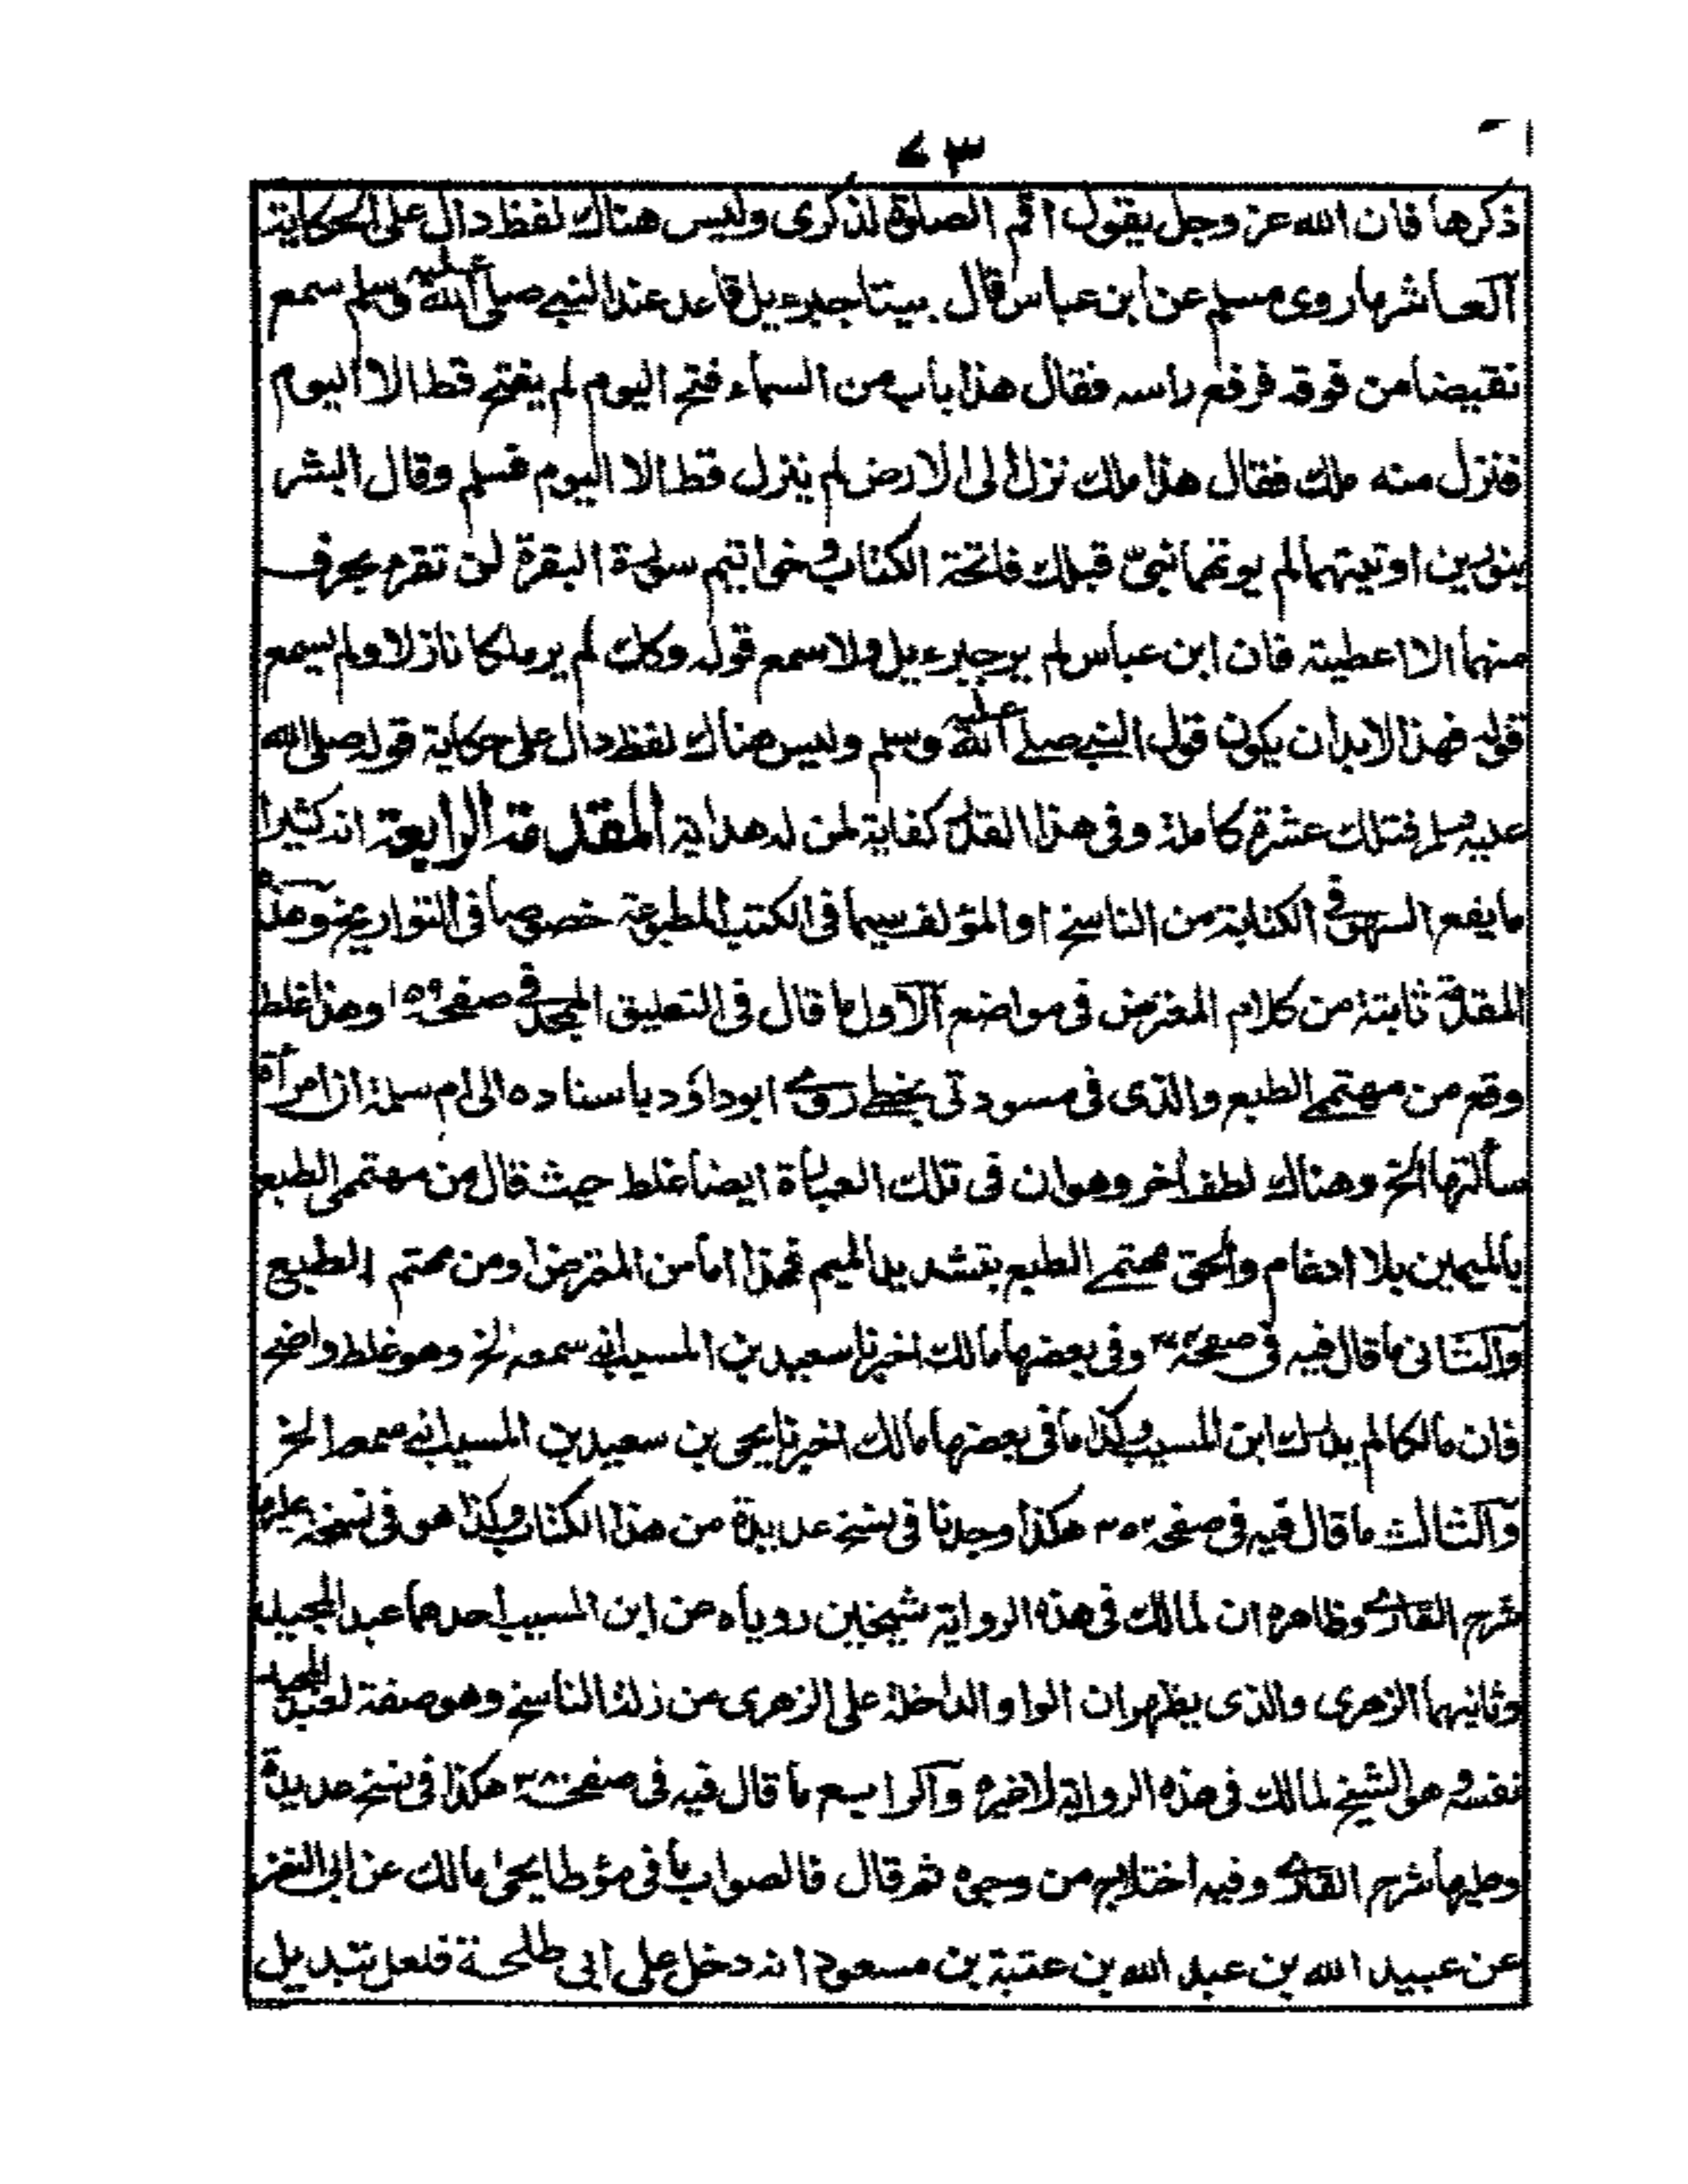 ٧٣
ذكرها فان الله عز وجل يقول اقم الصلوة لذكرى وليس هناك لفظ دال على الحكاية
آلعاشرها روى مسلم عن ابن عباس قال بينا جبرءيل قاعد عند النبي صلى الله عليه وسلم سمع
نقيضا من فوقه فرفع راسه فقال هذا باب من السماء فتح اليوم لم يفتح قط الا اليوم
فنزل منه ملك فقال هذا ملك نزل الى الارض لم ينزل قط الا اليوم فسلم وقال ابشر
بنورين اوتيتهما لم يوتهما نبيّ قبلك فاتحة الكتاب وخواتيم سورة البقرة لن تقرء بحرف
منهما الا اعطيته فان ابن عباس لم ير جبرءيل ولا سمع قوله وكك لم ير ملكا نازلا ولم يسمع
قوله فهذا لابد ان يكون قول النبي صلے الله عليه وسلم وليس هناك لفظ دال على حكاية قوله صلى الله
عليه وسلم فتلك عشرة كاملة وفى هذا القدر كفاية لمن له هداية المقدمة الرابعة انه كثيرا
ما يقع السهو فى الكتابة من الناسخ او المؤلف سيما فى الكتب المطبوعة خصوصا فى التواريخ وهذه
المقدمة ثابتة من كلام المعترض فى مواضع آلاول ما قال فى التعليق الممجد فى صفحة ١٥٩ وهذا غلط
وقع من مهتمے الطبع والذى فى مسودتى بخطے روى ابوداؤد باسناده الى ام سلمة ان امرأة
سألتها الخ وهناك لطف آخر وهو ان فى تلك العبارة ايضا غلط حيث قال من مهتممى الطبع
بالميمين بلا ادغام والحق مهتمے الطبع بتشديد الميم فهذا اما من المعترض او من مهتم الطبع
وآلثانى ما قال فيه فى صفحة وفى بعضها مالك اخبرنا سعيد بن المسيب انه سمعه الخ وهو غلط واضح
فان مالكا لم يدرك ابن المسيب وكذا ما فى بعضها مالك اخبرنا يحيى بن سعيد بن المسيب انه سمعه الخ
وآلثالث ما قال فيه فى صفحة ٣٥٢ هكذا وجدنا فى نسخ عديدة من هذا الكتاب وكذا هو فى نسخة عليها
شرح القارى وظاهره ان لمالك فى هذه الرواية شيخين روياه عن ابن المسيب احدهما عبد المجيد
وثانيهما الزهرى والذى يظهر ان الواو الداخلة على الزهرى من زلة الناسخ وهو صفة لعبد المجيد
نفسه وهو الشيخ لمالك فى هذه الرواية لا غيره وآلرابع ما قال فيه فى صفحة ٣٨٠ هكذا فى نسخ عديدة
وعليها شرح القارى وفيه اختلال من وجوه ثم قال فالصواب ما فى مؤطا يحيى مالك عن ابى النضر
عن عبيد الله بن عبد الله بن عتبة بن مسعود انه دخل على ابى طلحة فلعل تبديل